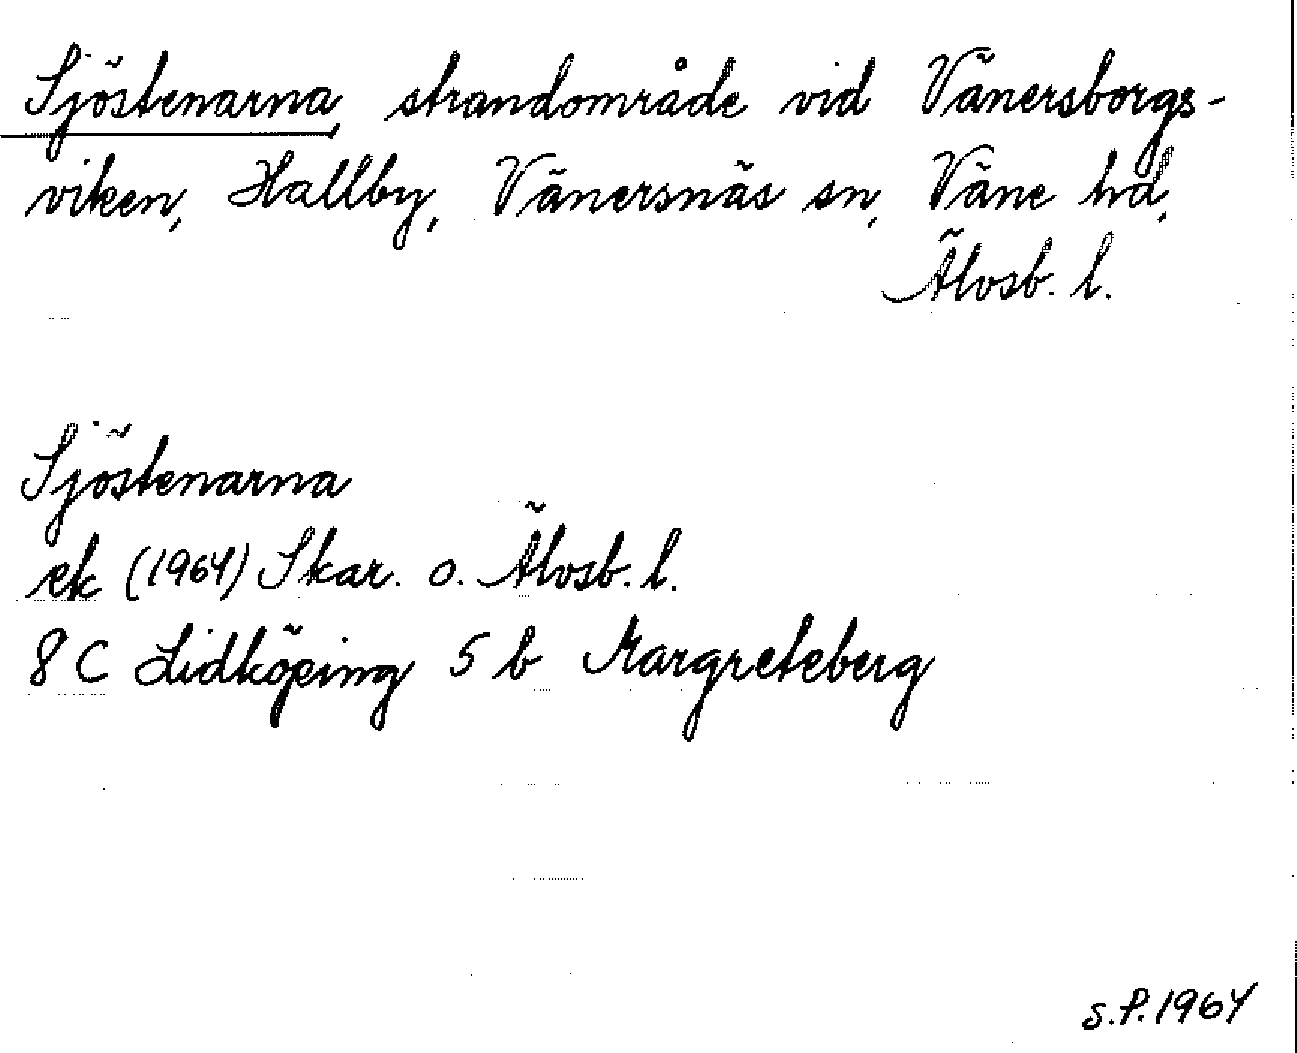 Sjöstenarna, strandområde vid Vänersborgs-
viken, Hallby, Vänersnäs sn, Väne hd,
Älvsb. l.
Sjöstenarna
ek (1964) Skar. o. Älvsb. l.
8 C Lidköping 5 b Margreteberg
S.P. 1964